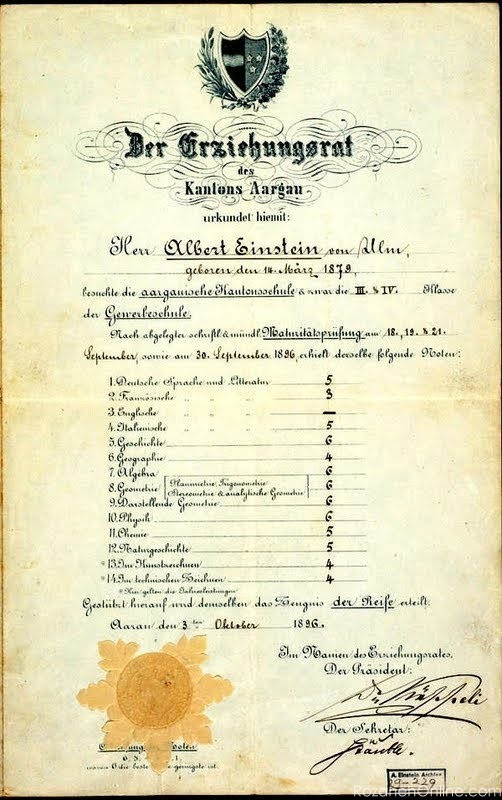 Der Erziehungsrat
des
Kantons Aargau
urkundet hiemit:
Herr Albert Einstein von Ulm,
geboren den 14. März 1879,
besuchte die aargauische Kantonsschule & zwar die III. & IV. Klasse
der Gewerbeschule.
Nach abgelegter schriftl. & mündl. Maturitätsprüfung am 18., 19. & 21.
September, sowie am 30. September 1896, erhielt derselbe folgende Noten:
1. Deutsche Sprache und Litteratur 5
2. Französische „ „ „ 3
3. Englische „ „ „ —
4. Italienische „ „ „ 5
5. Geschichte 6
6. Geographie 4
7. Algebra 6
8. Geometrie (Planimetrie, Trigonometrie, Stereometrie & analytische Geometrie) 6
9. Darstellende Geometrie 6
10. Physik 6
11. Chemie 5
12. Naturgeschichte 5
*13. Im Kunstzeichnen 4
*14. Im technischen Zeichnen 4
* Hier gelten die Jahresleistungen.
Gestützt hierauf wird demselben das Zeugnis der Reife erteilt.
Aarau den 3ten Oktober 1896.
Im Namen des Erziehungsrates,
Der Präsident:
Der Sekretär:
Noten
A. Einstein Archive
29-229
RozanehOnline.com